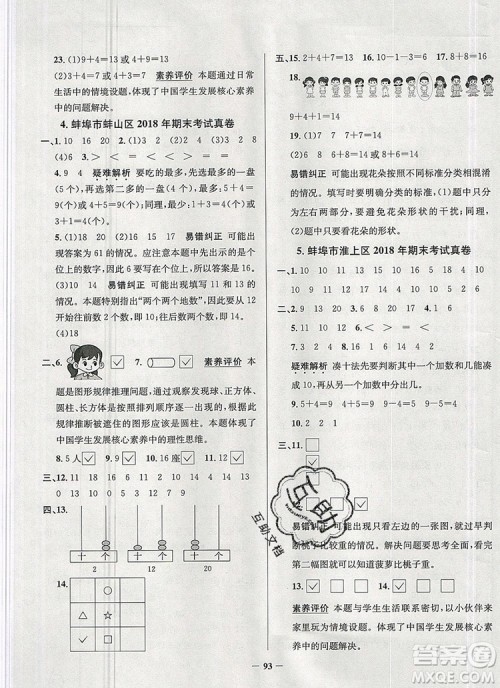 23.(1)9+4=13 或 4+9=13
(2)13-4=9 或 13-9=4 素养评价 本题通过日常
生活中的情境设题，体现了中国学生发展核心素养
中的问题解决。
4.蚌埠市蚌山区 2018 年期末考试真卷
一、1.10 16 2.19 20 3.> < > =
4.9 4 疑难解析 要吃的最多，则剩下的一份最
多，再选择第二多的一份，剩下的两份吃掉，可以吃
5+4=9(个)；同理，最少可以吃
3+1=4(个)。
5.(1)20 (2)16 易错纠正 可能
出现答案为 61 的情况。注意先出示的是个
位上的数字，因此个位上是 6，十位上是 1。
(3)11 易错纠正 可能出现填 12 或
10 的情况。本题提示“两个两个地数”，可从 12 开
始，往前数两个数，即为 10。
(4)18
二、6. 7. 素养评价 本
题是图形规律推理问题，通过观察发现球、正方体、
圆柱、长方体是按照排列顺序依次出现的，按照这
个规律推断被遮住的图形应该是圆柱。本题体现了
中国学生发展核心素养中的理性思维。
8.5人 9. 10.
三、11.12 16 18 4 13 12.7 16 14
10 9 13
四、13.
十 个 十 个 十 个
2 12 20
14.
五、15.2+4+7=13 16.10-1-3=6 17.8+8=16
18.
9+1+4=14
19.(1)2+6=8 (2)6+7=13
易错纠正 可能出现花朵外形的不同和颜色分类相
混的情况。填写时要明确分类的标准，(1)题中分
为左右两边，不要看花朵形状的干扰；同理，(2)题
中只看花朵的形状。
5.蚌埠市淮上区 2018 年期末考试真卷
一、1.10 10 9 13 11 12 17 10 11 10
15 16 14 2 18 1
二、2.9 15 3.19 4.4 7 5.2 5 4
6.16 14 13 12 7.< > = =
8.2 8 12
疑难解析 凑十法先要判断其中一个加数与几能凑
成 10，再从下一个加数中分出几即可。
9.4+5=9 5+4=9 9-5=4 9-4=5
10.2 15
三、11. 12.
易错纠正 可能出现只看左边的一张图，就误以为
桃子比较重的情况。解决问题要学会从整体考虑，
第二幅图中就可以知道菠萝比桃子重。
13. 14.
15.
素养评价 本题与学生生活联系密切，以小伙伴来
家里玩为情境出题，体现了中国学生发展核心素养
中的问题解决。
互助
互助文档
93
答案圈
MXQE.COM